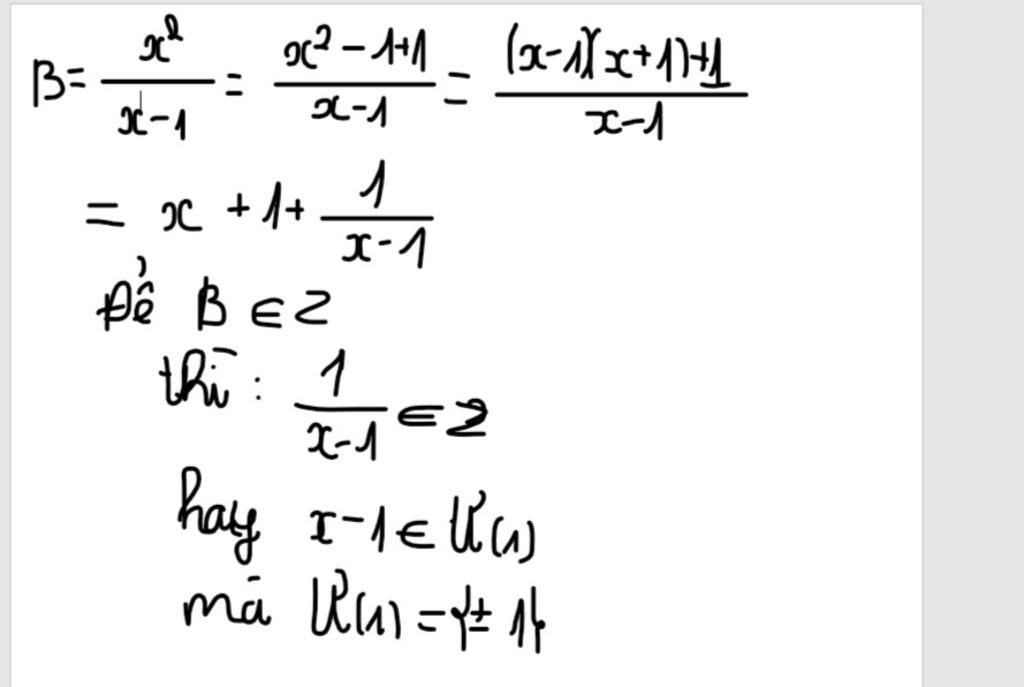 B = x²/(x-1) = (x²-1+1)/(x-1) = ((x-1)(x+1)+1)/(x-1)
= x + 1 + 1/(x-1)
Để B ∈ Z
thì : 1/(x-1) ∈ Z
hay x-1 ∈ Ư(1)
mà Ư(1) = {± 1}